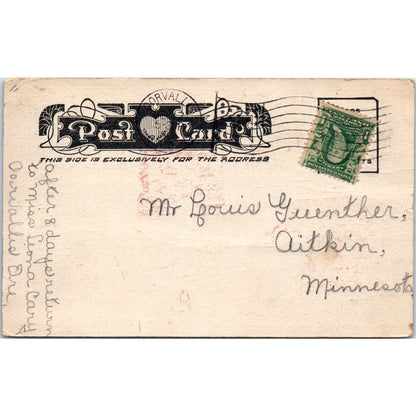 CORVALLI
Post Card
THIS SIDE IS EXCLUSIVELY FOR THE ADDRESS
Mr Louis Guenther,
Aitkin,
Minnesota
after 8 days return
to Miss Leona Cary
Corvallis Ore,